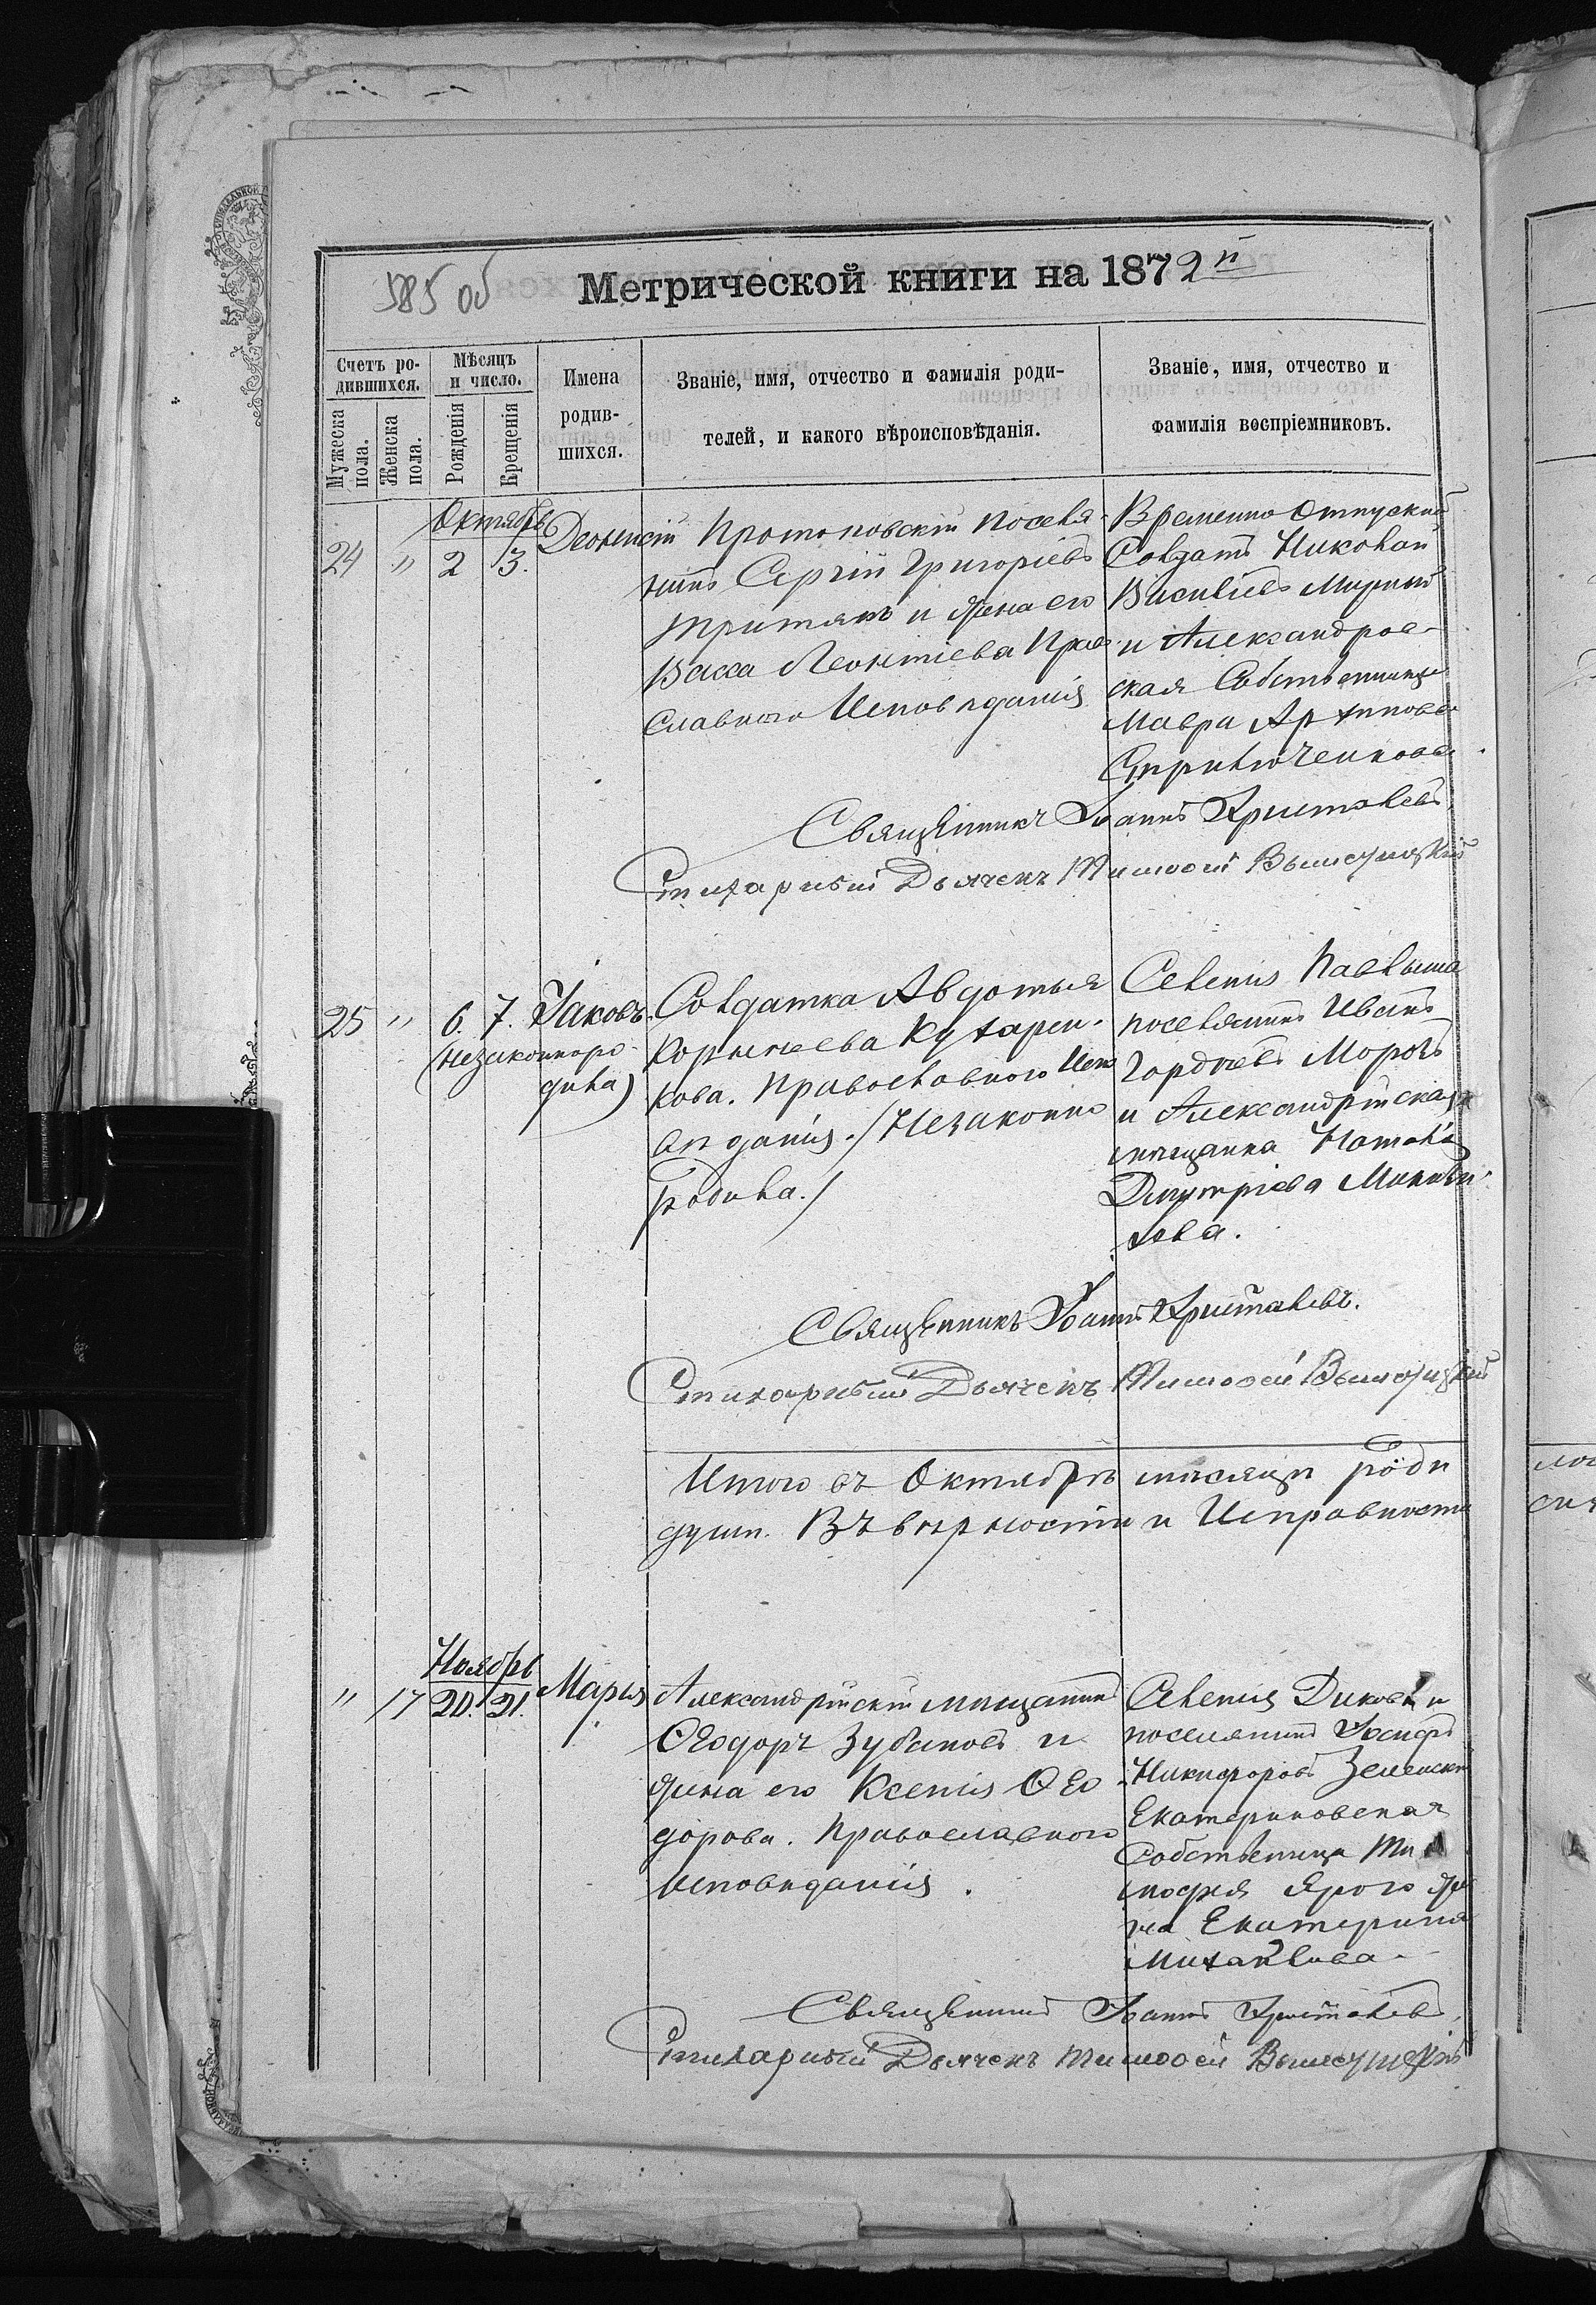 585 об
Метрической книги на 1872й
Счетъ ро-
дившихся.
Мужеска пола.
Женска пола.
Мѣсяцъ
и число.
Рожденія
Крещенія
Имена
родив-
шихся.
Званіе, имя, отчество и фамилія роди-
телей, и какого вѣроисповѣданія.
Званіе, имя, отчество и
фамилія воспріемниковъ.
Октябрь
24 " 2 3.
Деонисій
Протоповскій поселя-
нинъ Сергій Григоріевъ
Притякъ и жена его
Васса Леонтіева Право
славнаго Исповѣданія
Временно Отпускной
Солдатъ Николай
Василіевъ Мирный
и Александров-
ская Собственница
Мавра Архипова
Стрилюченкова
Священникъ Іоаннъ Кристалевъ
Стихарный Дьячекъ Тимоѳей
25 " 6. 7. Іаковъ.
(незаконноро
дила)
Солдатка Авдотья
Корнѣева Кухарен-
кова. Православного Испо
вѣданія. /Незаконно
родила./
Селенія Павлыша
поселянинъ Иванъ
Гордѣевъ Морозъ
и Александрійская
мѣщанка Наталія
Димитріева
Священникъ Іоаннъ Кристалевъ.
Стихарный Дьячекъ Тимоѳей
Итого въ Октябрѣ мѣсяцѣ роди
душъ. Въ вѣрности и Исправности
Ноябрь
" 17 20. 21. Марія
Александрійскій мѣщанинъ
Ѳеодоръ Зубановъ и
жена его Ксенія Ѳео
дорова. Православного
исповѣданія.
Селенія Диковки
поселянинъ Іосифъ
Никифоровъ Зеленскій
Екатериновская
Собственница Ти
мофея Ярого же
на Екатерина
Михайлова
Священникъ Іоаннъ Кристалевъ
Стихарный Дьячекъ Тимоѳей